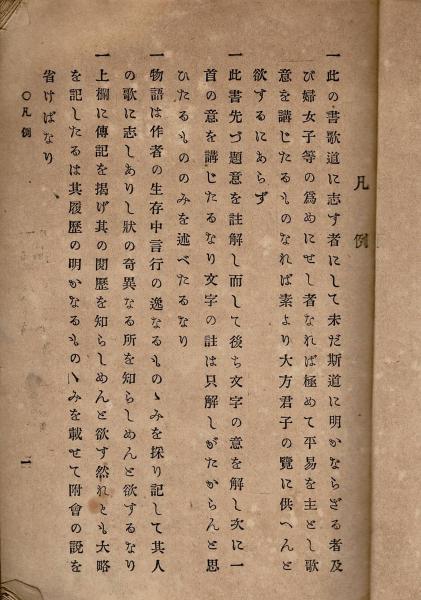 凡例
一此の書歌道に志す者にして未だ斯道に明かならざる者及
び婦女子等の爲めにせし者なれば極めて平易を主とし歌
意を講じたるものなれば素より大方君子の覽に供へんと
欲するにあらず
一此書先づ題意を註解し而して後ち文字の意を解し次に一
首の意を講じたるなり文字の註は只解しがたからんと思
ひたるもののみを述べたるなり
一物語は作者の生存中言行の逸なるものゝみを採り記して其人
の歌に志しありし狀の奇異なる所を知らしめんと欲するなり
一上欄に傳記を揭げ其の閱歷を知らしめんと欲す然れとも大略
を記したるは其履歷の明かなるものゝみを載せて附會の說を
省けばなり
〇凡例
一